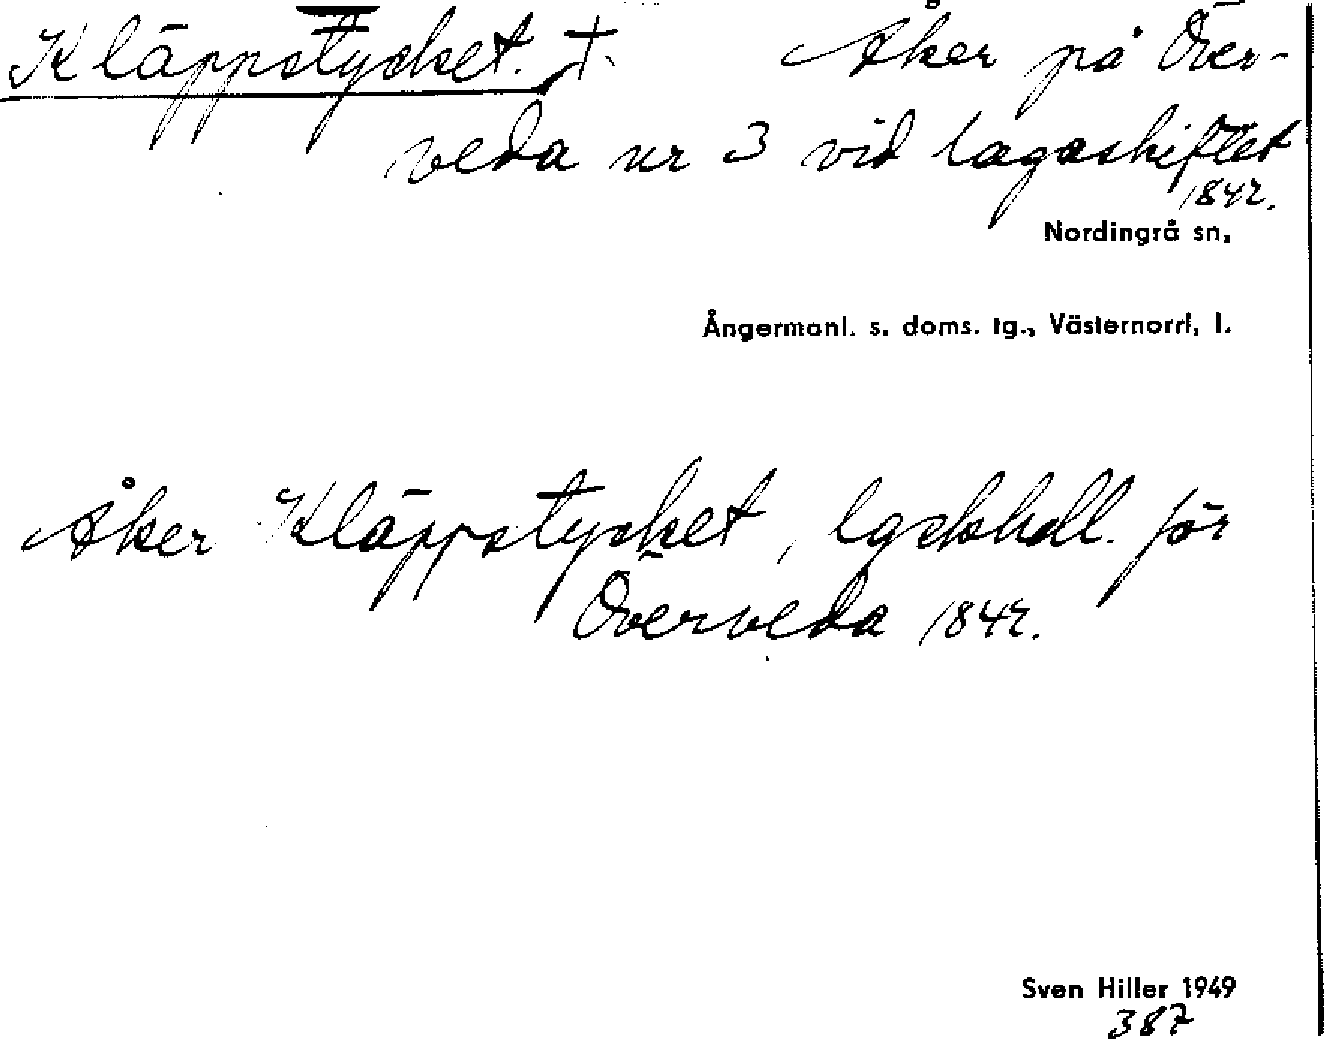 Kläppstycket. †. Åker på Över-
veda nr 3 vid lagaskiftet
1842.
Nordingrå sn,
Ångermanl. s. doms. tg., Västernorrl, l.
Åker Kläppstycket, lgskhdl. för
Överveda 1842.
Sven Hiller 1949
387